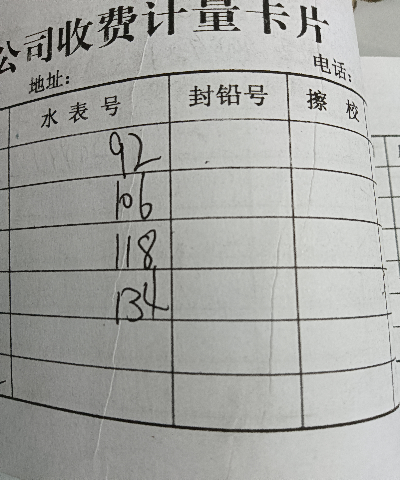 公司收费计量卡片
地址: 电话:
水表号 封铅号 擦校
92
106
118
134